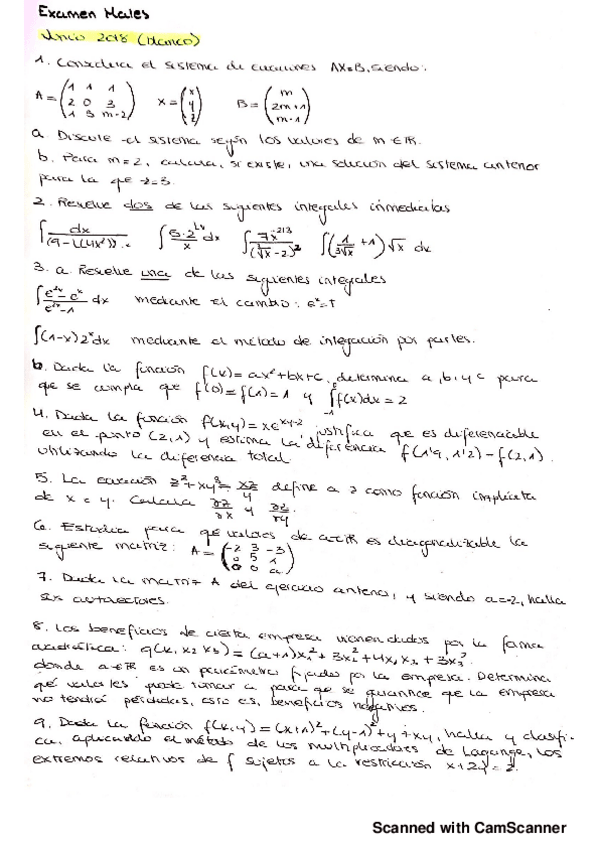 Examen Mates
Junio 2018 (blanco)
1. Considera el sistema de ecuaciones AX=B, siendo:
A = (1 1 1 / 2 0 3 / 1 3 m-2) X = (x / y / z) B = (m / 2m+1 / m-1)
a. Discute el sistema según los valores de m ∈ ℝ.
b. Para m=2, calcula, si existe, una solución del sistema anterior
para la que z=3.
2. Resuelve dos de las siguientes integrales inmediatas
∫ 7x^-2/3 / (∛x - 2)² ∫ (1/3√x + 1) √x dx
3. a. Resuelve una de las siguientes integrales
∫ e^2x - e^x / e^2x - 1 dx mediante el cambio: e^x = t
∫(1-x) 2^x dx mediante el método de integración por partes.
b. Dada la función f(x) = ax²+bx+c, determina a, b y c para
que se cumpla que f(0) = f(1) = 1 y ∫ f(x) dx = 2
4. Dada la función f(x,y) = xe^xy-2 justifica que es diferenciable
en el punto (2,1) y estima la diferencia f(1'9, 1'2) - f(2,1).
utilizando la diferencia total.
5. La ecuación z² + xy³ = xz/y define a z como función implícita
de x e y. Calcula ∂z/∂x y ∂z/∂y
6. Estudia para qué valores de a∈ℝ es diagonalizable la
siguiente matriz: A = (-2 3 -3 / 0 5 1 / 0 0 a)
7. Dada la matriz A del ejercicio anterior, y siendo a=-2, halla
sus autovectores.
8. Los beneficios de cierta empresa vienen dados por la forma
cuadrática: q(x₁ x₂ x₃) = (a+1)x₁² + 3x₂² + 4x₂x₃ + 3x₃²
donde a∈ℝ es un parámetro fijado por la empresa. Determina
qué valores puede tomar a para que se garantice que la empresa
no tendrá pérdidas, esto es, beneficios negativos.
9. Dada la función f(x,y) = (x+1)² + (y-1)² + y + xy, halla y clasifi-
ca, aplicando el método de los multiplicadores de Lagange, los
extremos relativos de f sujetos a la restricción x+2y=2.
Scanned with CamScanner